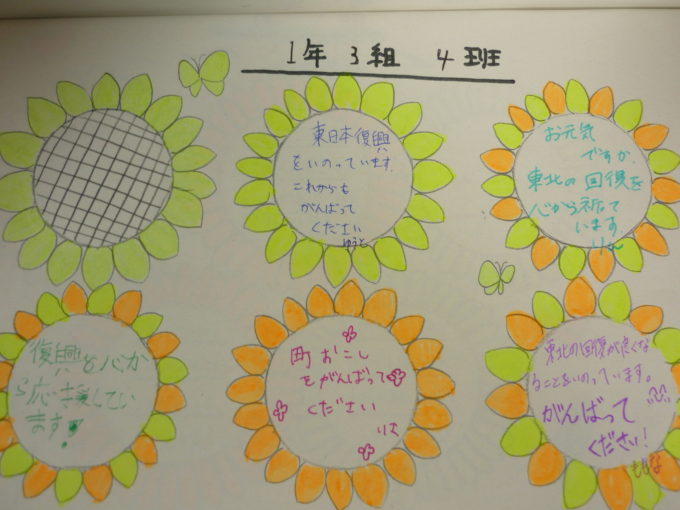 1年 3組 4班
東日本復興
をいのっています。
これからも
がんばって
ください
ゆうと
お元気
ですか。
東北の回復を
心から祈て
います。
復興を心か
ら応援してい
ます!
町おこし
をがんばって
ください
りさ
東北の回復が良くな
ることをいのっています。
がんばって
ください!